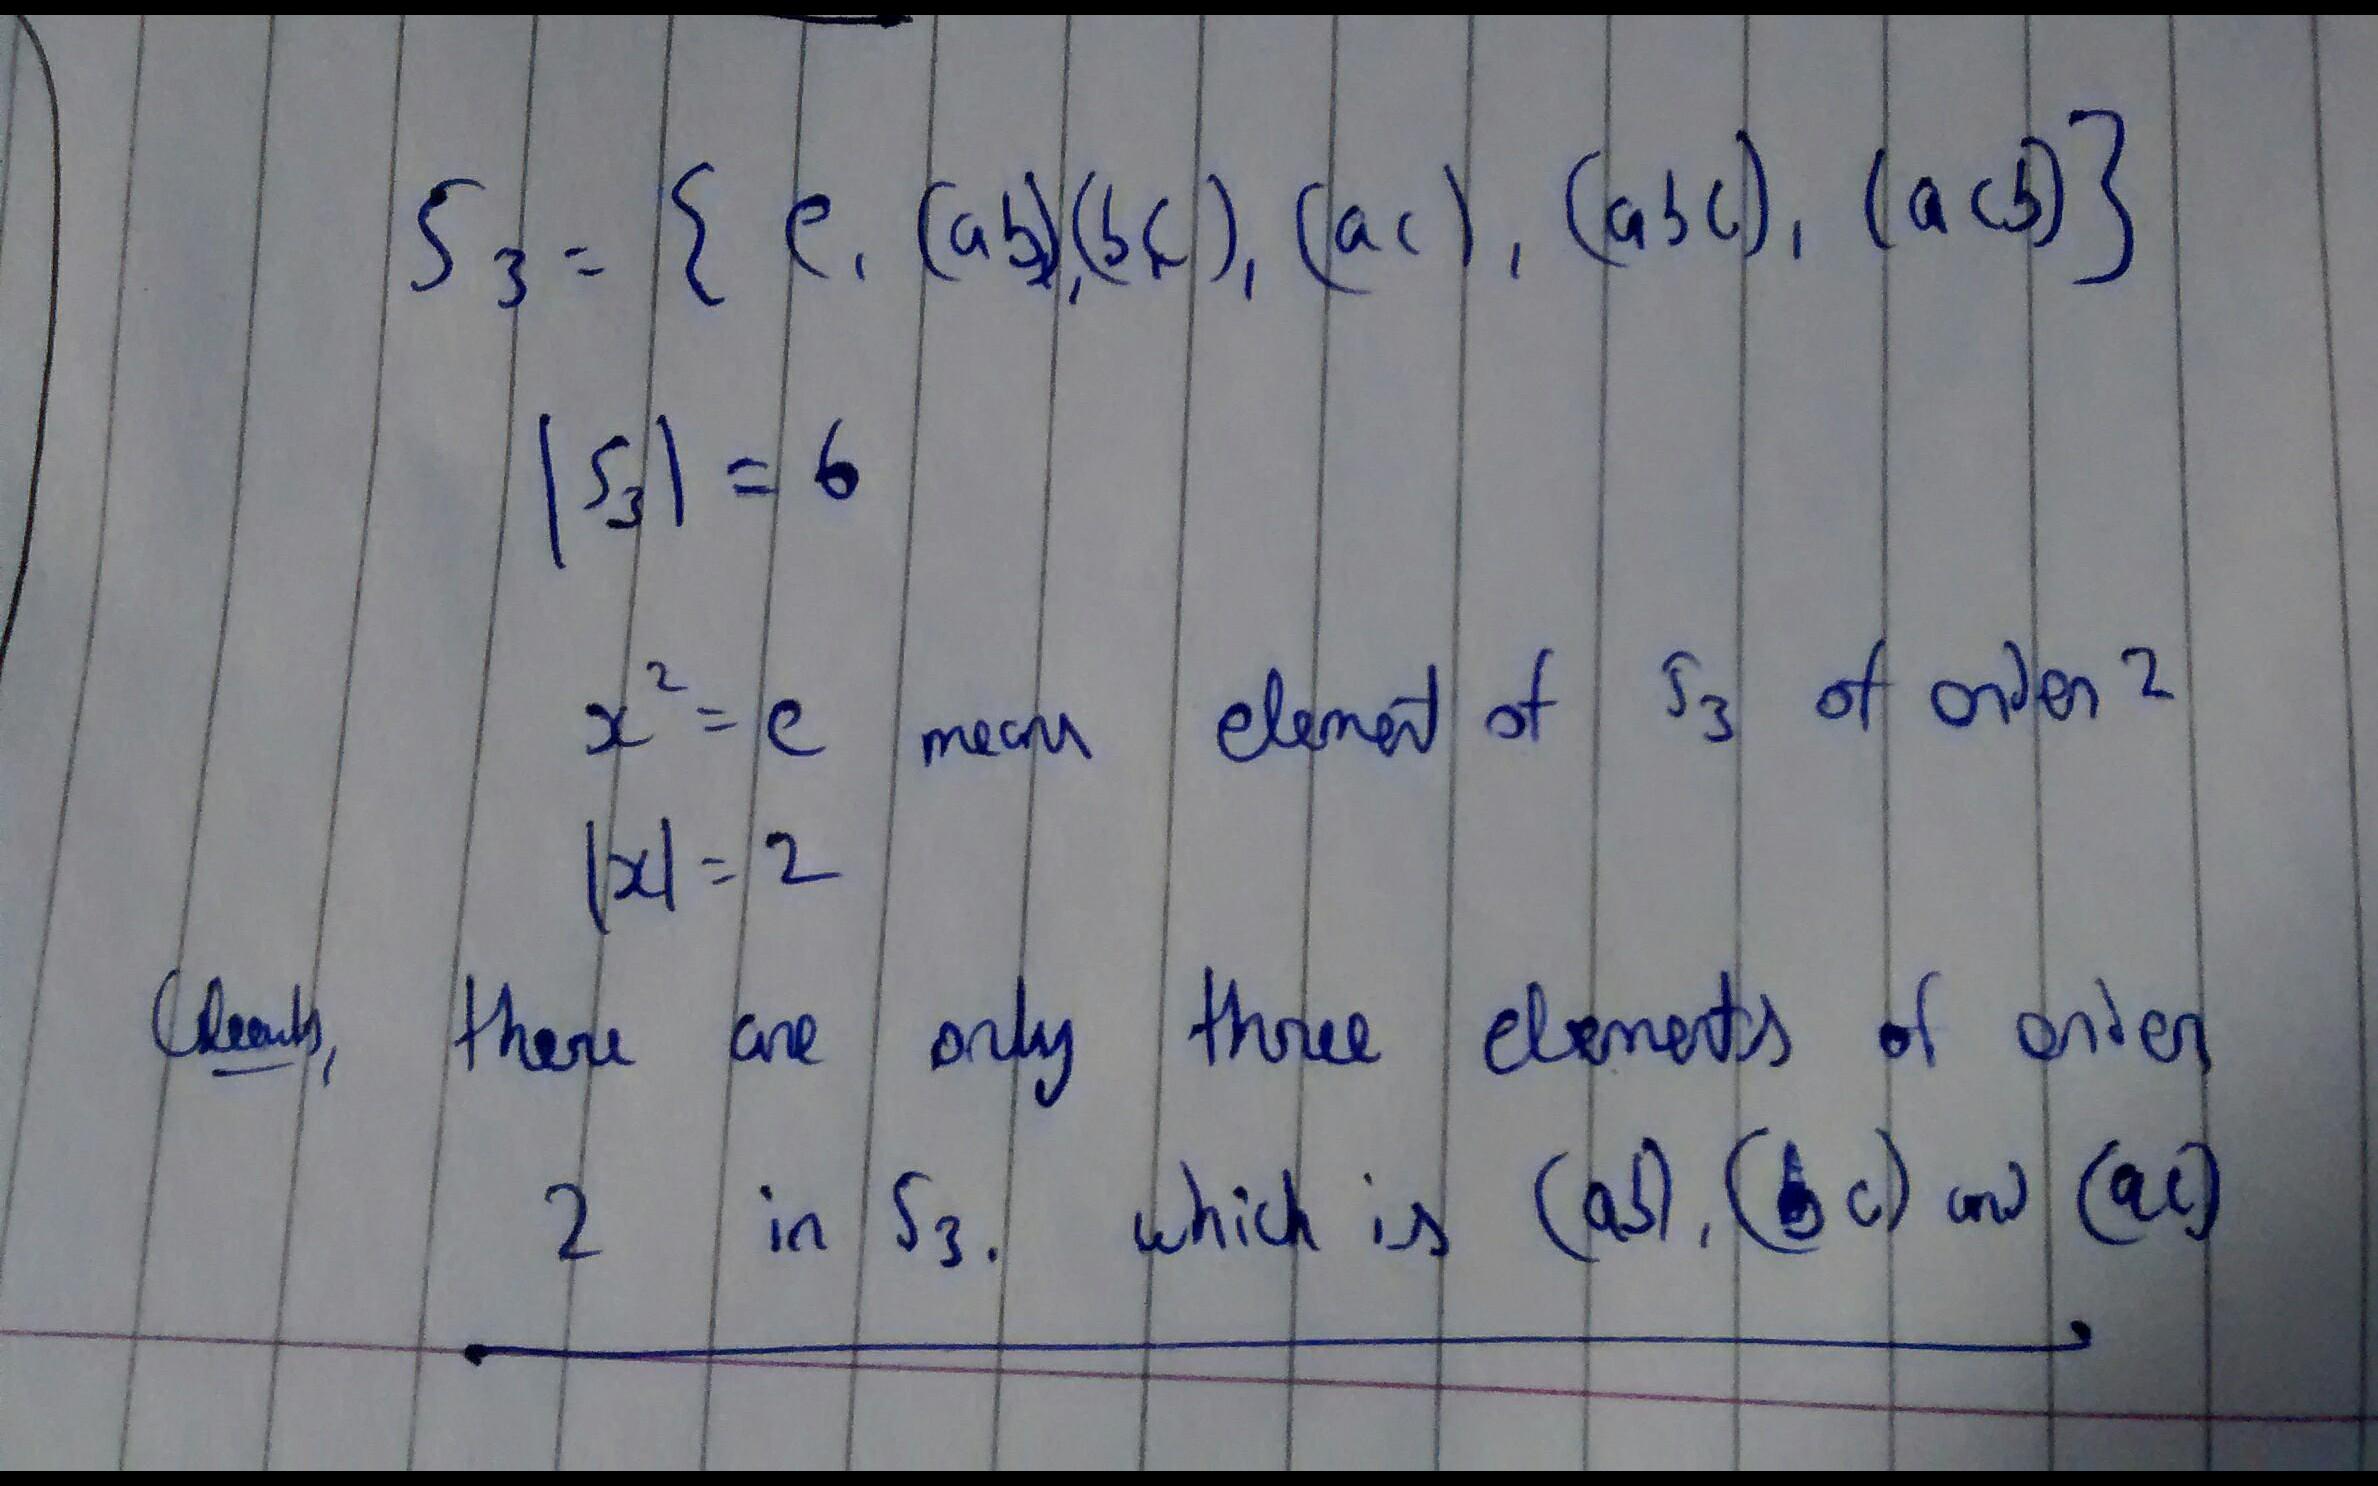 S₃ = { e, (ab), (bc), (ac), (abc), (acb) }
|S₃| = 6
x² = e means element of S₃ of order 2
|x| = 2
Clearly, there are only three elements of order
2 in S₃. which is (ab), (bc) and (ac)